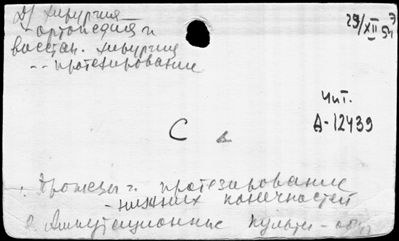 Д) Хирургия
- ортопедия и
восстан. хирургия
-- протезирование
29/XII 54
Чит.
А-12439
С
Протезы и протезирование
- нижних конечностей
Ампутационные культи -